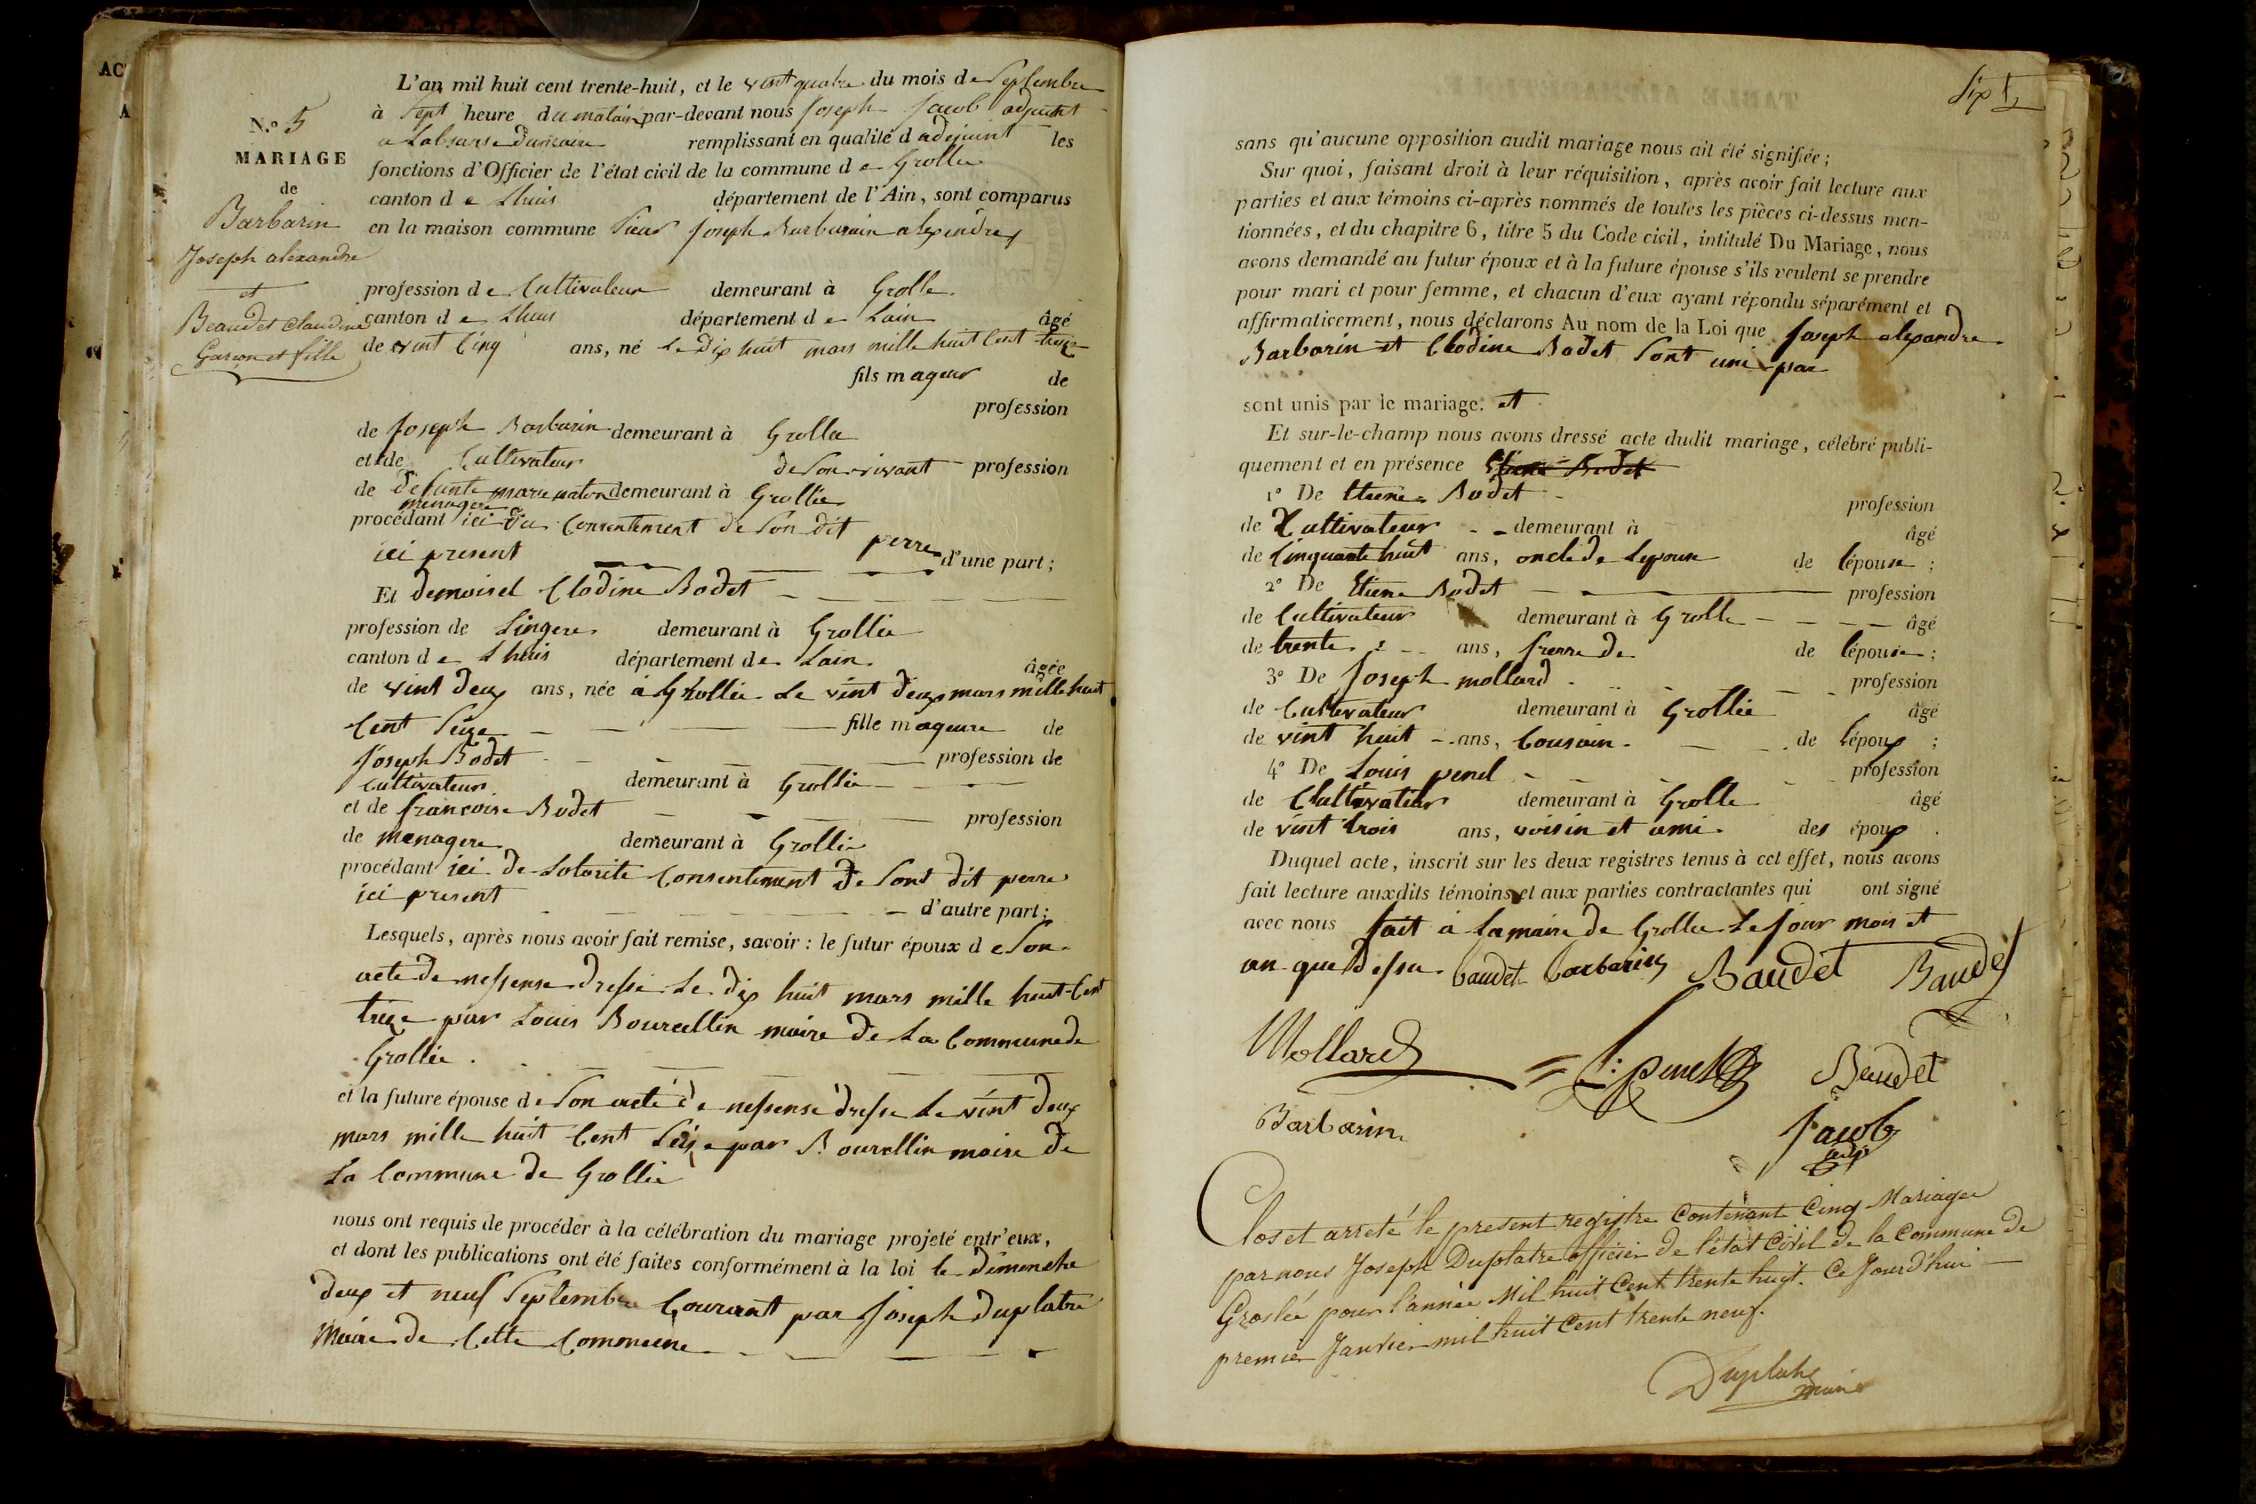 AC
A
N.o 5
MARIAGE
de
Barbarin
Joseph alexandre
et
Beaudet Claudine
Garçon et fille
L'an mil huit cent trente-huit, et le vint quatre du mois de Septembre
à Sept heure du matain par-devant nous Joseph Jacob adjuint
a Labsanse dumaire remplissant en qualité d adejuint les
fonctions d'Officier de l'état civil de la commune d e Grollee
canton d e Lhuis département de l'Ain, sont comparus
en la maison commune Sieur Joseph Barbarain alexendre
profession de Cultivateur demeurant à Grolle
canton d e Lhuis département d e Lain âgé
de vint Cinq ans, né Le dix huit mars mille huit Cent treize
fils mageur de
profession
de Joseph Barbarin demeurant à Grollee
et de Cultivateur de Son vivant profession
de defunte marie demeurant à Grollie
menagere
procédant ici du Consentement de Son dit perre
ici present d'une part;
Et demoisel Clodine Bodet
profession de Lingere demeurant à Grollie
canton d e Lhuis département de Lain âgée
de vint deux ans, née à Grollie Le vint deux mars mille huit
Cent Seize fille mageure de
Joseph Bodet profession de
Cultivateur demeurant à Grollie
et de francoise Bodet profession
de menagere demeurant à Grollie
procédant ici de Lotorite Consentement de Sont dit perre
ici present d'autre part;
Lesquels, après nous avoir fait remise, savoir: le futur époux d e Son
acte de nessense dresse Le dix huit mars mille huit Cent
treze par Louis Bourcellin maire de La Commune de
Grollie
et la future épouse de Son acte de nessense dresse Le vint deux
mars mille huit Cent Seize par Bourellin maire de
La Commune de Grollie
nous ont requis de procéder à la célébration du mariage projeté entr'eux,
et dont les publications ont été faites conformément à la loi le dimenche
deux et neuf Septembre Courantt par Joseph duplatre
Maire de Cette Commeune
Six
sans qu'aucune opposition audit mariage nous ait été signifiée;
Sur quoi, faisant droit à leur réquisition, après avoir fait lecture aux
parties et aux témoins ci-après nommés de toutes les pièces ci-dessus men-
tionnées, et du chapitre 6, titre 5 du Code civil, intitulé Du Mariage, nous
avons demandé au futur époux et à la future épouse s'ils veulent se prendre
pour mari et pour femme, et chacun d'eux ayant répondu séparément et
affirmativement, nous déclarons Au nom de la Loi que Joseph alexandre
Barbarin et Clodine Bodet Sont uni par
sont unis par le mariage. et
Et sur-le-champ nous avons dressé acte dudit mariage, célébré publi-
quement et en présence Etiene Bodet
1o De Etiene Bodet profession
de Cultivateur demeurant à âgé
de Cinquante huit ans, oncle de Lepouse de lépouse;
2o De Etiene Bodet profession
de Cultivateur demeurant à Grolle âgé
de trente ans, frerre de de lépouse;
3o De Joseph mollard profession
de Cultivateur demeurant à Grollie âgé
de vint huit ans, Cousain de lépoux;
4o De Louis penel profession
de Cultivateur demeurant à Grolle âgé
de vint trois ans, voisin et ami des époux.
Duquel acte, inscrit sur les deux registres tenus à cet effet, nous avons
fait lecture auxdits témoins et aux parties contractantes qui ont signé
avec nous fait à Lamaire de Grollee Le jour mois et
an que dessu. baudet barbarin Baudet Baudet
Mollard L: penel Baudet
Barbarin
Jacob
adj
Clos et arreté le present registre Contenant Cinq Mariages
par nous Joseph Duplatre officier de l'état Civil de la Commune de
Groslée pour l'année Mil huit Cent trente huit. Ce Jourd'hui
premier Janvier mil huit Cent trente neuf.
Duplatre
maire